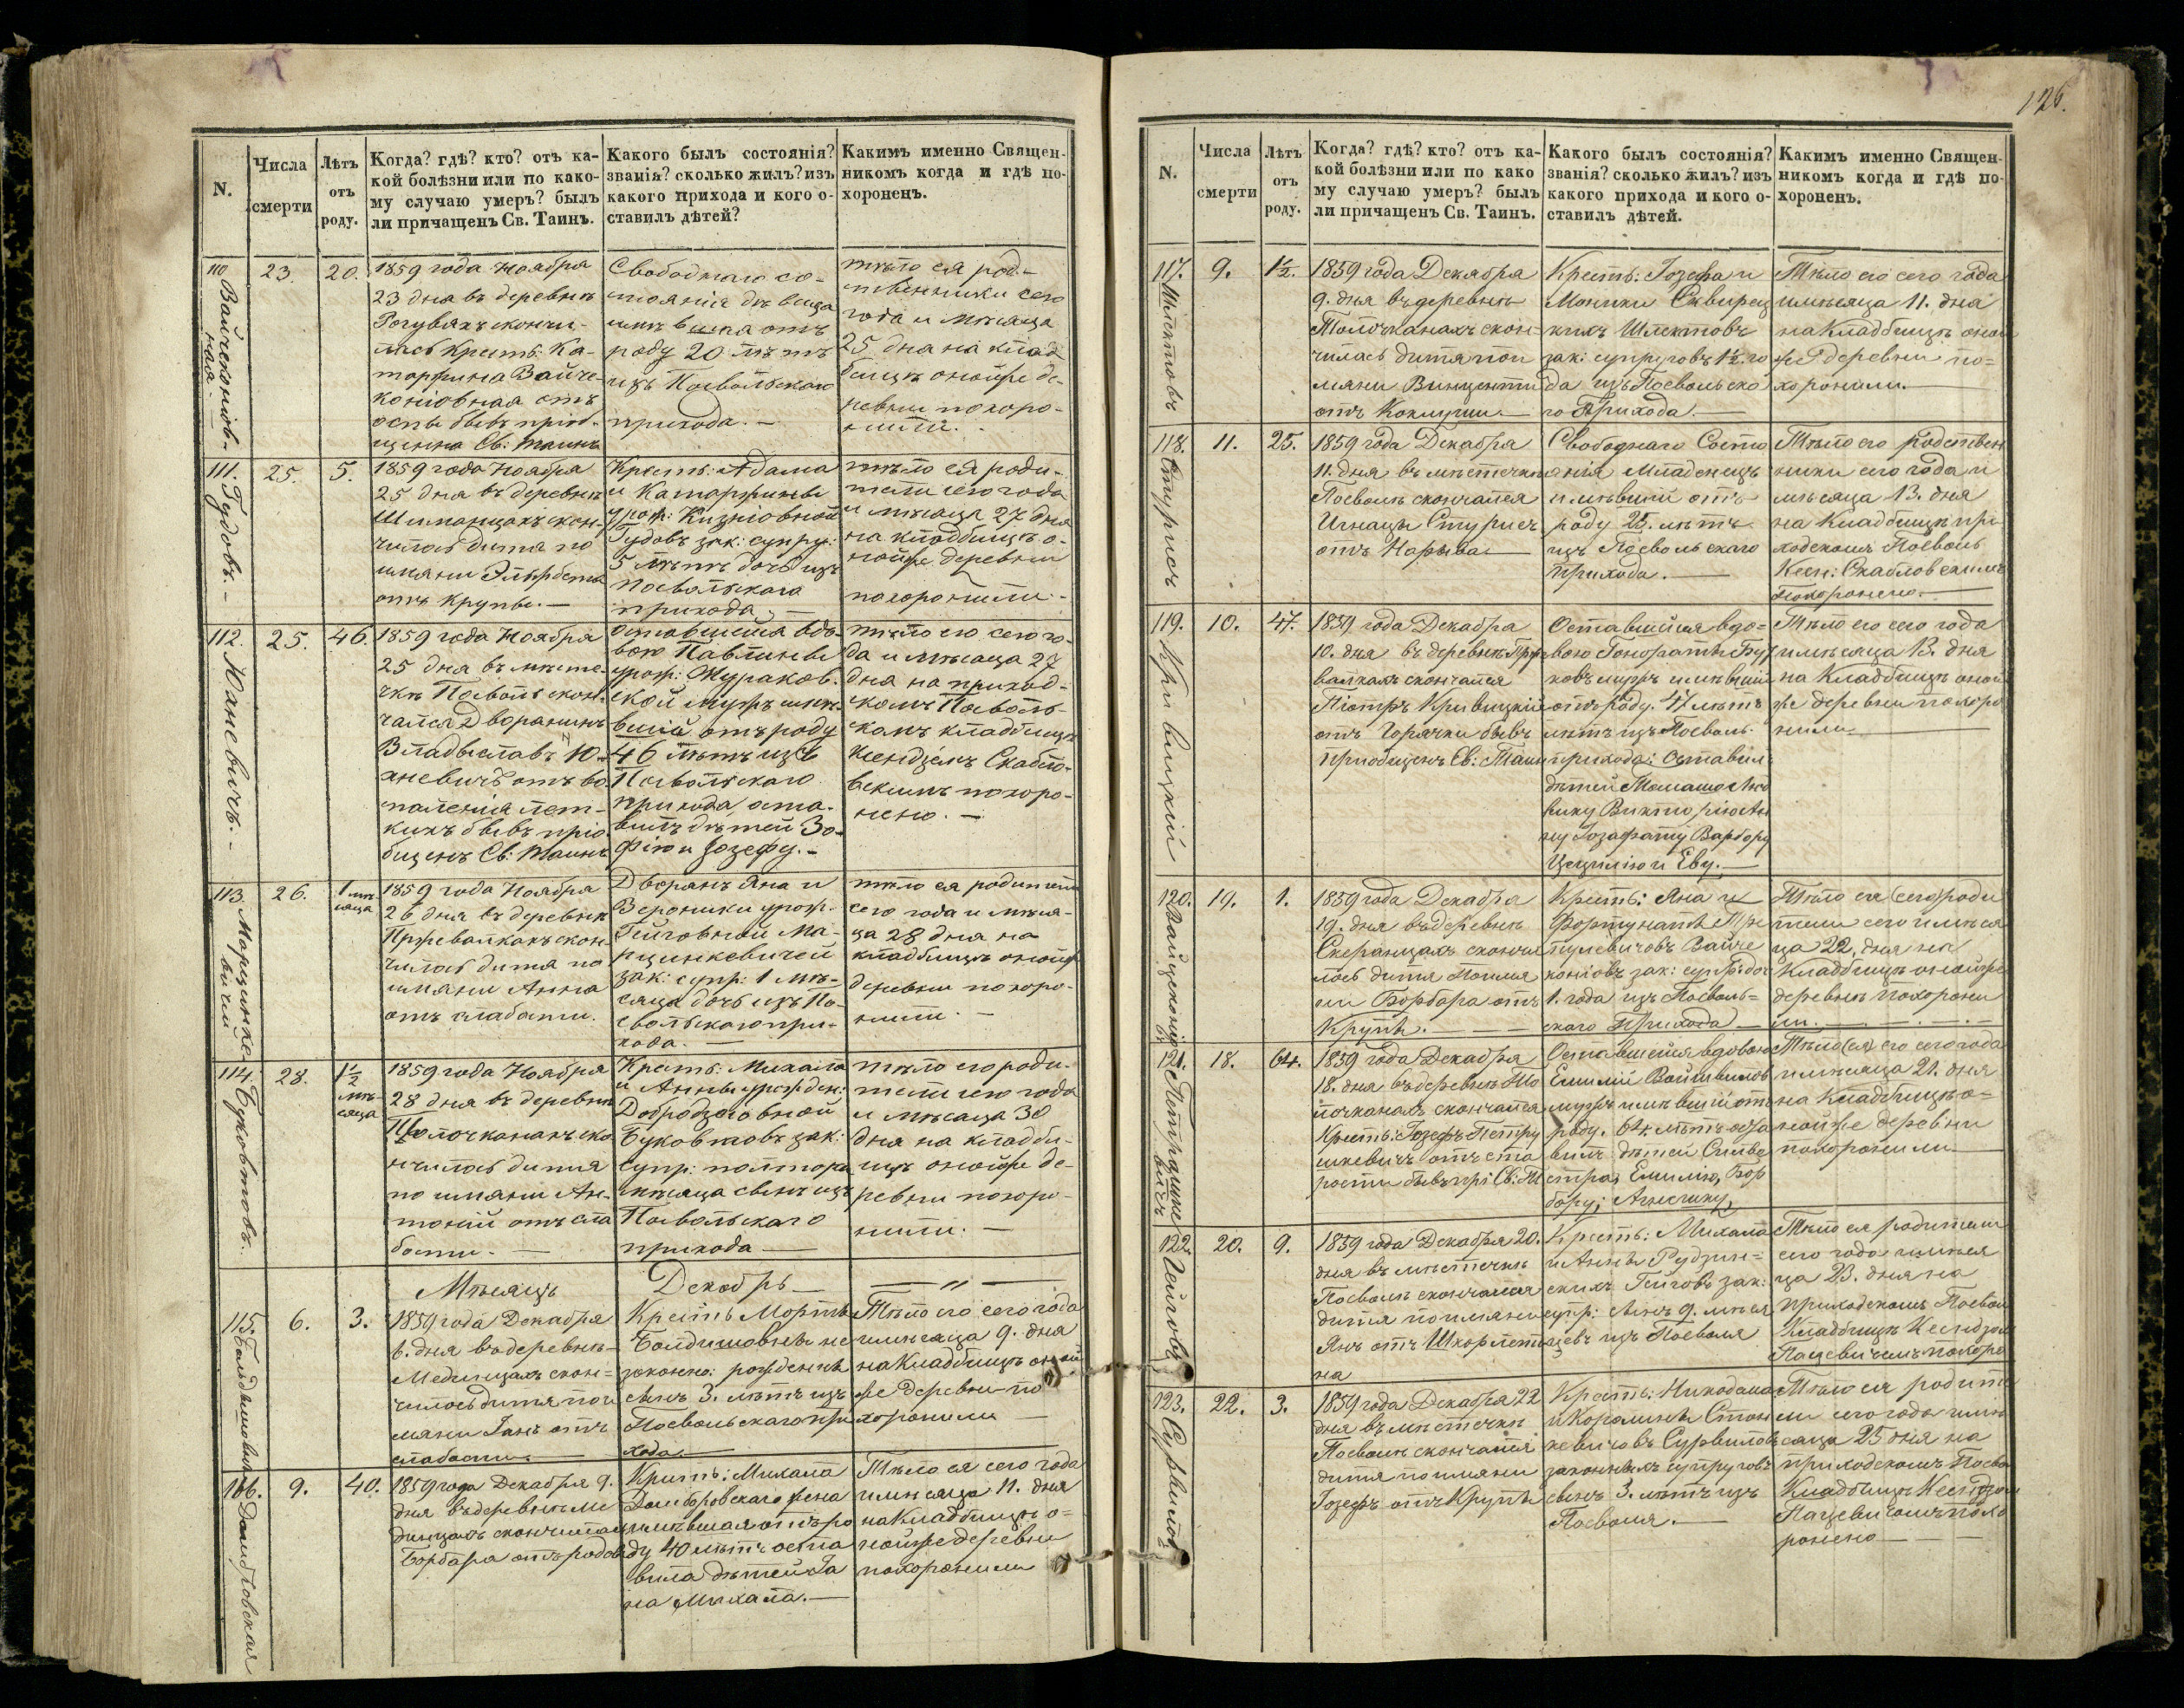 126.
N.
Числа
смерти
Лѣтъ
отъ
роду.
Когда? гдѣ? кто? отъ ка-
кой болѣзни или по како-
му случаю умеръ? былъ
ли причащенъ Св. Таинъ.
Какого былъ состоянія?
званія? сколько жилъ? изъ
какого прихода и кого о-
ставилъ дѣтей?
Какимъ именно Священ-
никомъ когда и гдѣ по-
хороненъ.
110
Вайчеконіов-
ная.
23
20.
1859 года Ноября
23 дня въ деревнѣ
Рогувяхъ сконча-
лась Крест: Ка-
таржина Вайче-
коніовная отъ
оспы бывъ пріоб-
щенна Св: Таинъ
Свободнаго со-
стоянія дѣвица
имѣвшая отъ
роду 20 лѣтъ
изъ Посвольскаго
прихода. –
тѣло ея род-
ственники сего
года и Мѣсяца
25 дня на клад-
бищѣ онойже де-
ревни похоро-
нили. –
111.
Гудовъ. –
25.
5.
1859 года Ноября
25 дня въ деревнѣ
Шиманцахъ скон-
чилось дитя по
имяни Эльжбета
отъ крупы. –
Крест: Адама
и Катаржины
урож: Кизніовной
Гудовъ зак: супру:
5 лѣтъ дочь изъ
Посвольскаго
прихода. –
тѣло ея роди-
тели сего года
и мѣсяца 27 дня
на кладбищѣ о-
нойже деревни
похоронили. –
112.
Юаневичъ. –
25.
46.
1859 года Ноября
25 дня въ мѣсте-
чкѣ Посволь скон-
чался Дворянинъ
Владыславъ Ю-
аневичъ отъ вос-
паленія лег-
кихъ бывъ пріо-
бщенъ Св: Таинъ
оставшейся вдо-
вою Павлины
урож: Жураков-
ской мужъ имѣ-
вшій отъ роду
46 лѣтъ изъ
Посвольскаго
прихода оста-
вилъ дѣтей Зо-
фію и Іозефу. –
тѣло его сего го-
да и мѣсяца 27
дня на приход-
скомъ Посволь-
скомъ кладбищѣ
Ксендземъ Скабло-
вскимъ похоро-
нено. –
113.
Марцинке-
вичей
26.
1 мѣ-
сяца
1859 года Ноября
26 дня въ деревнѣ
Пржевалкахъ скон-
чилось дитя по
имяни Анна
отъ слабости.
Дворянъ Яна и
Вероники урож-
Гейговной Ма-
рцинкевичей
зак: супр: 1 мѣ-
сяца дочь изъ По-
свольскаго при-
хода. –
тѣло ея родители
сего года и мѣся-
ца 28 дня на
кладбищѣ онойже
деревни похоро-
нили. –
114.
Буковтовъ.
28.
1½
мѣ-
сяца
1859 года Ноября
28 дня въ деревнѣ
Толочканахъ ско
нчилось дитя
по имяни Ан-
тоній отъ сла
бости. –
Крест: Михаила
и Анны урожден:
Добродзіовной
Буковтовъ зак:
супр: полтора
мѣсяца сынъ изъ
Посвольскаго
прихода –
тѣло его роди-
тели сего года
и мѣсаца 30
дня на кладби-
щѣ онойже де-
ревни похоро-
нили. –
Мѣсяцъ
Декабрь
– „ –
115.
6.
3.
1859 года Декабря
6. дня въ деревнѣ
Мединцахъ скон-
чилось дитя по и
мяни Іанъ отъ
слабости. –
Крестъ Морты
Болдишовны не
законно: рожденный
сынъ 3. лѣтъ изъ
Посвольскаго при
хода. –
Тѣло его сего года
и мѣсяца 9. дня
на Кладбищѣ оной
же деревни по
хоронили –
116.
Домбровская
9.
40.
1859 года Декабря 9.
дня въ деревнѣ Ме
динцахъ скончилась
Барбара отъ родовъ
Крест: Михала
Домбровскаго жена
имѣвшая отъ ро
ду 40 лѣтъ оста
вила дѣтей Іа
на Михала. –
Тѣло ея сего года
и мѣсяца 11. дня
на Кладбищѣ о-
нойже деревни
похоронили
N.
Числа
смерти
Лѣтъ
отъ
роду.
Когда? гдѣ? кто? отъ ка-
кой болѣзни или по како
му случаю умеръ? былъ
ли причащенъ Св. Таинъ.
Какого былъ состоянія?
званія? сколько жилъ? изъ
какого прихода и кого о-
ставилъ дѣтей.
Какимъ именно Священ-
никомъ когда и гдѣ по-
хороненъ.
117.
Шлектовъ
9.
1½.
1859 года Декабря
9. дня въ деревнѣ
Толочканахъ скон-
чилась дитя по и
мяни Винценти
отъ Коклуши –
Крест: Іозефа и
Моники Сквирец
кихъ Шлектовъ
зак: супруговъ 1½. го
да изъ Посвольско
го Прихода. –
Тѣло его сего года
и мѣсяца 11. дня
на Кладбищѣ оной
же деревни по-
хоронили. –
118.
Стурисъ
11.
25.
1859 года Декабря
11. дня въ мѣстечкѣ
Посволь скончался
Игнацы Стурисъ
отъ Нарыва –
Свободнаго Состо
янія Младенецъ
имѣвшій отъ
роду 25. лѣтъ
изъ Посвольскаго
прихода. –
Тѣло его родствен
ники сего года и
мѣсяца 13. дня
на Кладбищѣ при
ходскомъ Посволь
Ксен: Скабловскимъ
похоронено. –
119.
Кривицкій
10.
47.
1859 года Декабря
10. дня въ деревнѣ Прже
валкахъ скончался
Піотръ Кривицкій
отъ Горячки бывъ
пріобщенъ Св: Таинъ
Оставшейся вдо-
вою Гоноратѣ Бу
ковъ мужъ имѣвшій
отъ роду. 47 лѣтъ
изъ Посволь.
прихода: Оставилъ
дѣтей Томаша Лю
вику Викторію Ан
ну Іозафату Варбору
Цецилію и Еву. –
Тѣло его сего года
и мѣсяца 13. дня
на Кладбищѣ оной
же деревни похоро
нили. –
120.
19.
1.
1859 года Декабря
19. дня въ деревнѣ
Скеранцахъ скончи
лось дитя по имя
ни Борбара отъ
Крупы. –
Крест: Яна и
Фортунаты
Вайче
коніовъ зак: супр: дочь
1. года изъ Посволь-
скаго Прихода –
Тѣло ея (его) роди
тели сего и мѣся
ца 22. дня на
Кладбищѣ онойже
деревнѣ похорони
ли. –
121.
Петрашке
вичъ
18.
64.
1859 года Декабря
18. дня въ деревнѣ То
лочканахъ скончался
Крест: Іозефъ Петра
шкевичъ отъ ста
рости бывъ прі: Св: Т
Оставшейся вдовою
Емиліи Войшвиловъ
мужъ имѣвшій отъ
роду. 64. лѣтъ оста
вилъ дѣтей Сильве
стра, Емилію, Бор
бору, Агнешку,
Тѣло (ея) его сего года
и мѣсяца 21. дня
на Кладбищѣ о-
нойже деревни
похоронили –
122.
Гейговъ
20.
9.
1859 года Декабря 20.
дня въ мѣстечкѣ
Посволь скончался
дитя по имяни
Янъ отъ Шкорлети
на
Крест: Михала
и Анны Рудзин-
скихъ Гейговъ зак:
супр: сынъ 9. мѣся
цевъ изъ Посволя
Тѣло ея родители
сего года и мѣся
ца 23. дня на
приходскомъ Посвол
Кладбищѣ Ксендзом
Пацевичемъ похоро
123.
Сурвиловъ
22.
3.
1859 года Декабря 22
дня въ мѣстечкѣ
Посволь скончался
дитя по имяни
Іозефъ отъ Крупы
Крест: Никодема
и Каролины Стан
кевичовъ Сурвиловъ
законныхъ супруговъ
сынъ 3. лѣтъ изъ
Посволя. –
Тѣло ея родите
ли сего года и мѣ
сяца 23 дня на
приходскомъ Посво
Кладбищѣ Ксендзом
Пацевичемъ похо
ронено –